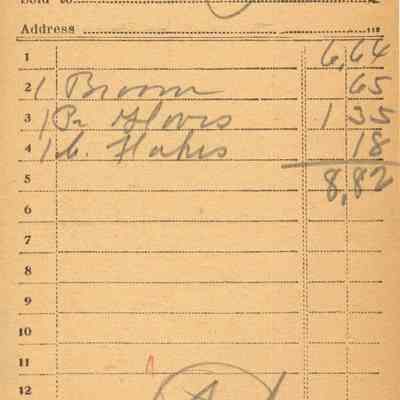 Sold to
Address
1 6,64
2 1 Broom 65
3 1 Pr Gloves 1 35
4 1 C. Flakes 18
5 8,82
6
7
8
9
10
11
12